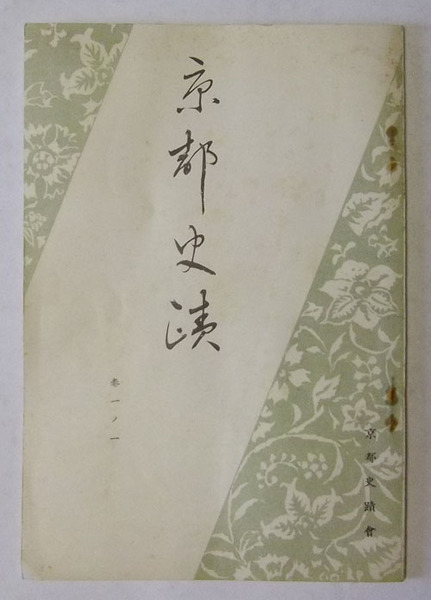 京都史蹟
巻一ノ一
京都史蹟會